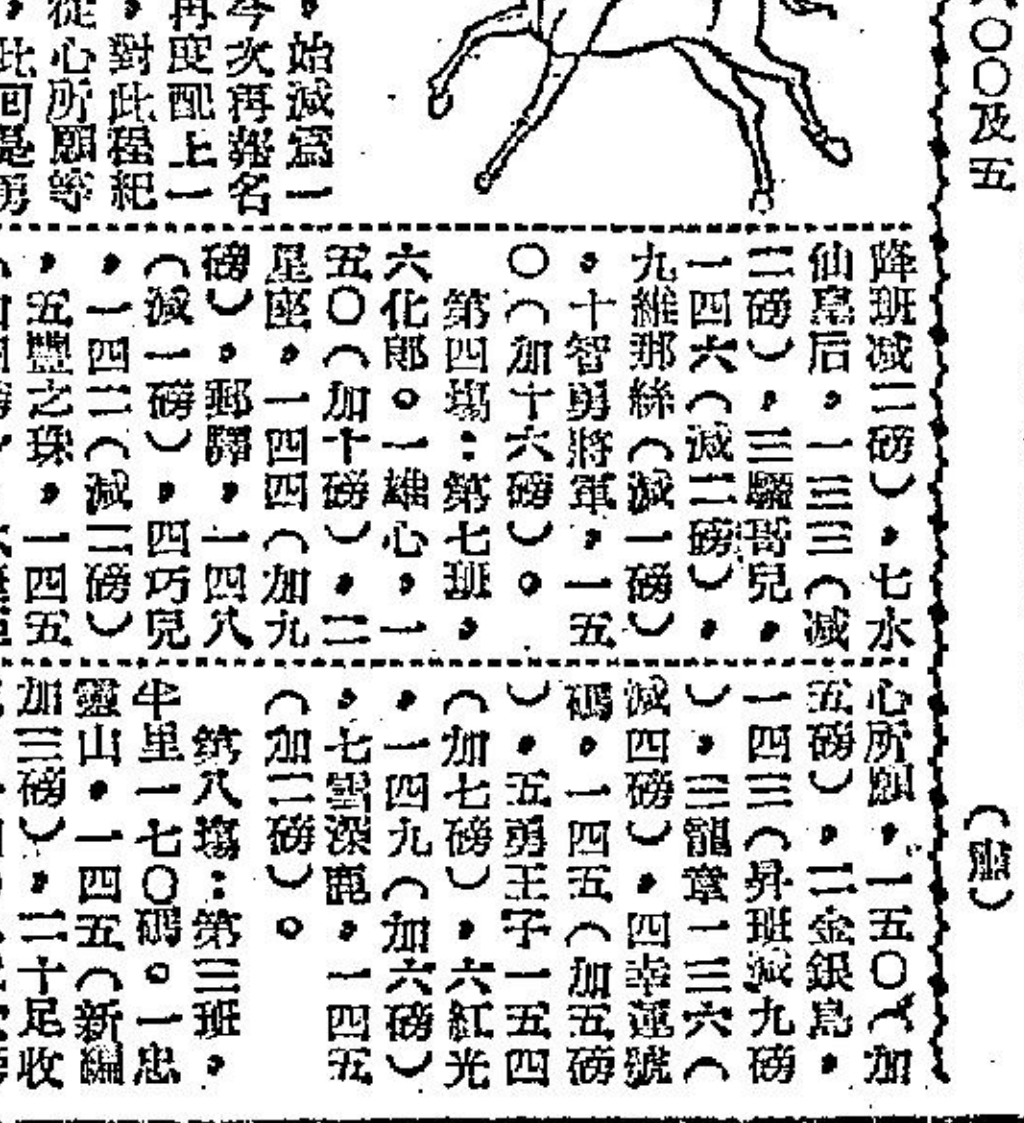 〇〇及五
，始減爲一
今次再報名
再度配上一
，對此程紀
從心所願等
，此回是勇
降班减二磅），七水
仙皇后，一三三（减
二磅），三驕哥兒，
一四六（減二磅），
九維那絲（減一磅）
，十智勇將軍，一五
〇（加十六磅）。
第四塲：第七班，
六化郎。一雄心，一
五〇（加十磅），二
星座，一四四（加九
磅），郵驛，一四八
（減一磅），四巧兒
，一四二（減二磅）
，五豐之珠，一四五
心所願，一五〇（加
五磅），二金銀島，
一四三（昇班減九磅
），三龍章一三六（
減四磅），四幸運號
碼，一四五（加五磅
），五勇王子一五四
（加七磅），六紅光
，一四九（加六磅）
，七雪深鹿，一四五
（加二磅）。
第八塲：第三班，
半里一七〇碼。一忠
靈山，一四五（新編
加三磅），二十足收